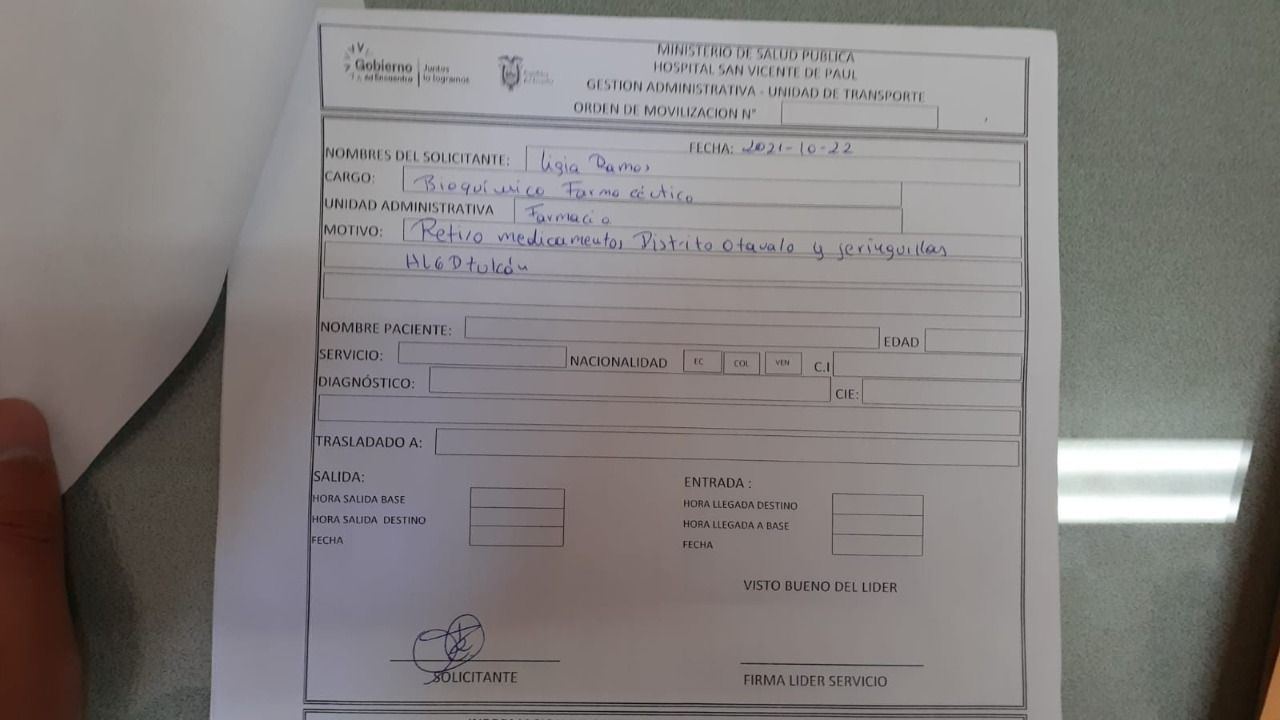 Gobierno
del Encuentro
Juntos
lo logramos
República
del Ecuador
MINISTERIO DE SALUD PUBLICA
HOSPITAL SAN VICENTE DE PAUL
GESTION ADMINISTRATIVA - UNIDAD DE TRANSPORTE
ORDEN DE MOVILIZACION N°
FECHA: 2021-10-22
NOMBRES DEL SOLICITANTE: Ligia Ramos
CARGO: Bioquímico Farmacéutico
UNIDAD ADMINISTRATIVA Farmacia
MOTIVO: Retiro medicamentos Distrito Otavalo y jeringuillas
HLGD tulcán
NOMBRE PACIENTE: EDAD
SERVICIO: NACIONALIDAD EC COL VEN C.I
DIAGNÓSTICO: CIE:
TRASLADADO A:
SALIDA: ENTRADA :
HORA SALIDA BASE HORA LLEGADA DESTINO
HORA SALIDA DESTINO HORA LLEGADA A BASE
FECHA FECHA
VISTO BUENO DEL LIDER
SOLICITANTE FIRMA LIDER SERVICIO